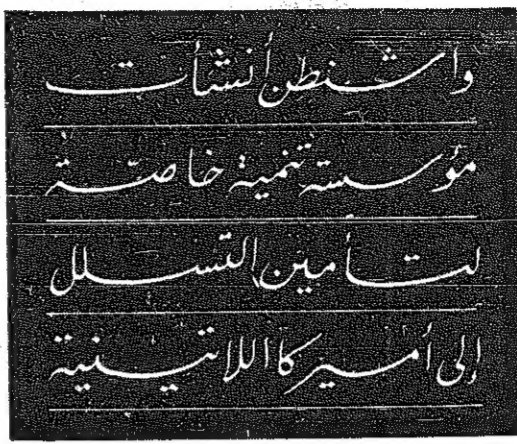 واشنطن أنشأت
مؤسسة تنمية خاصة
لتأمين التسلل
إلى أميركا اللاتينية